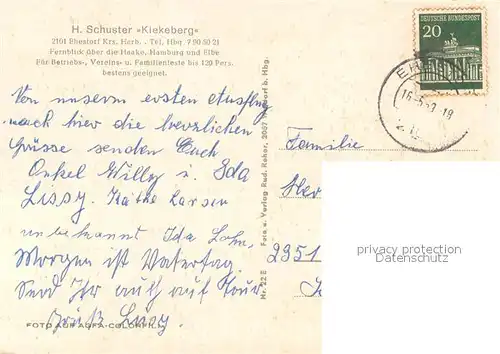 H. Schuster »Kiekeberg«
2101 Ehestorf Krs. Harb. - Tel. Hbg. 7 90 50 21
Fernblick über die Haake, Hamburg und Elbe
Für Betriebs-, Vereins- u. Familienfeste bis 120 Pers.
bestens geeignet.
DEUTSCHE BUNDESPOST
20
Von unserm ersten Ausflug
nach hier die herzlichen
Grüsse senden Euch
Onkel Willy u. Ida
Lissy. Käthe Larsen
unbekannt Ida
Morgen ist Vatertag.
Seid Ihr auch auf Tour
Gruß Lissy.
FOTO AUF AGFA-COLORFILM
Nr. 22 E
Foto u. Verlag Rud. Reher, dorf b. Hbg.
Familie
Her
2351
privacy protection
Datenschutz